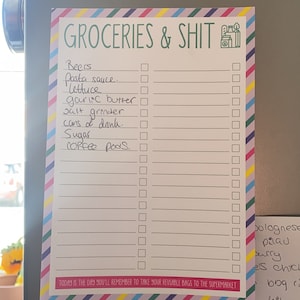 GROCERIES & SHIT
Beers
Pasta sauce
Lettuce
garlic butter
salt grinder
cans of drink
Sugar
coffee pods
TODAY IS THE DAY YOU'LL REMEMBER TO TAKE YOUR REUSABLE BAGS TO THE SUPERMARKET
bolognese
curry